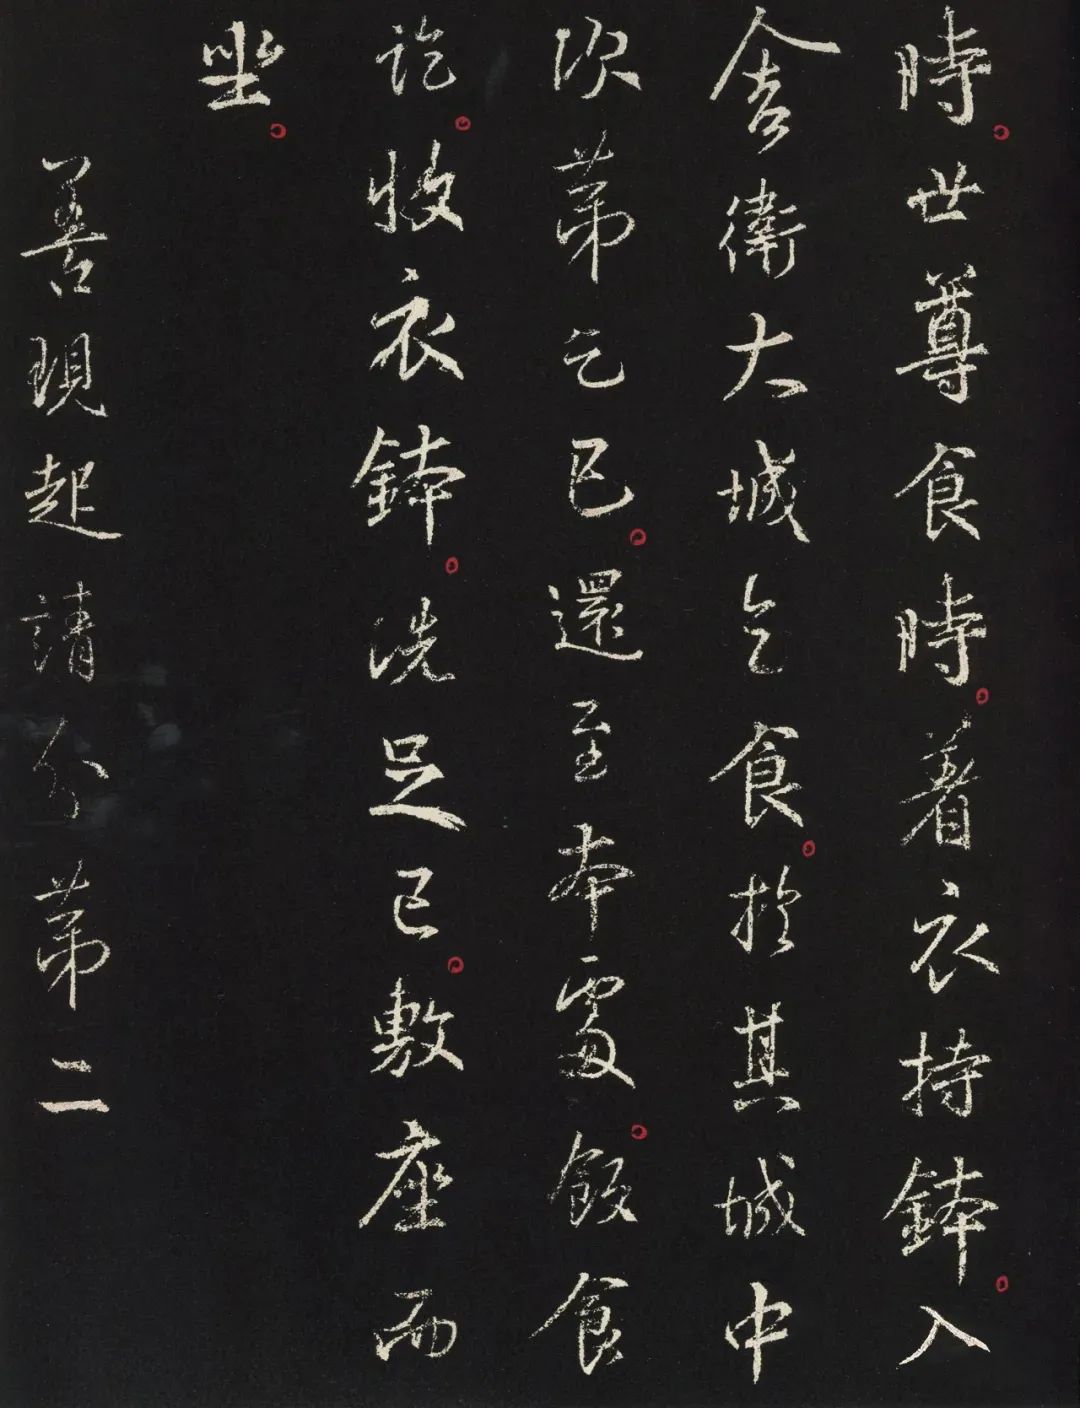 時。世尊食時。著衣持鉢。入
舍衛大城乞食。於其城中
次第乞已。還至本處。飯食
訖。收衣鉢。洗足已。敷座而
坐。
善現起請分第二